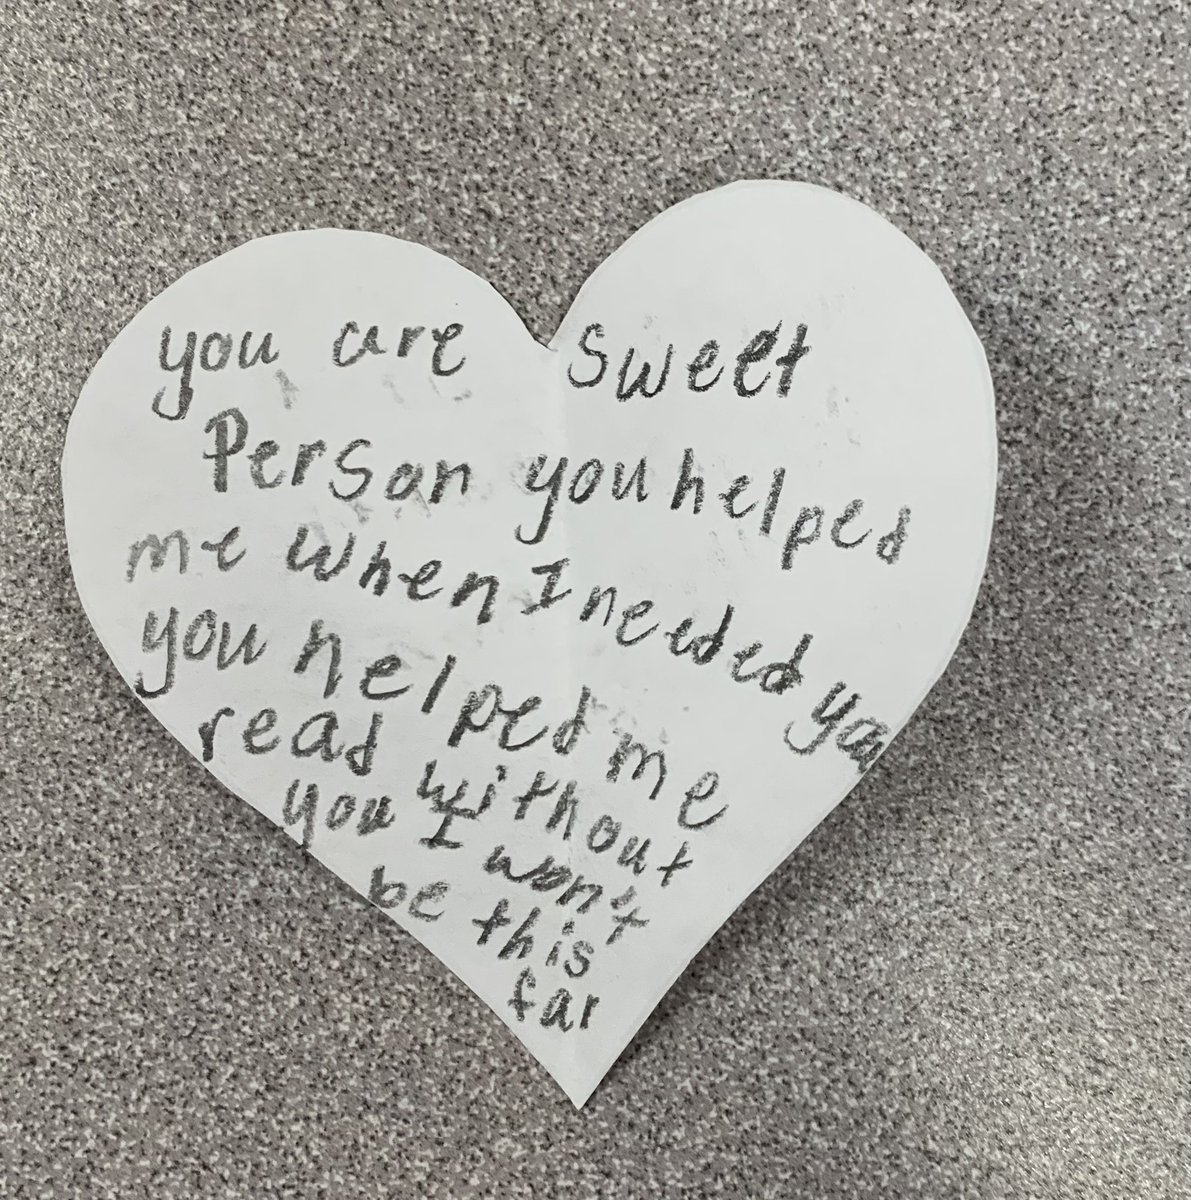 you are sweet
Person you helped
me when I needed you
you helped me
read without
you I won't
be this
far